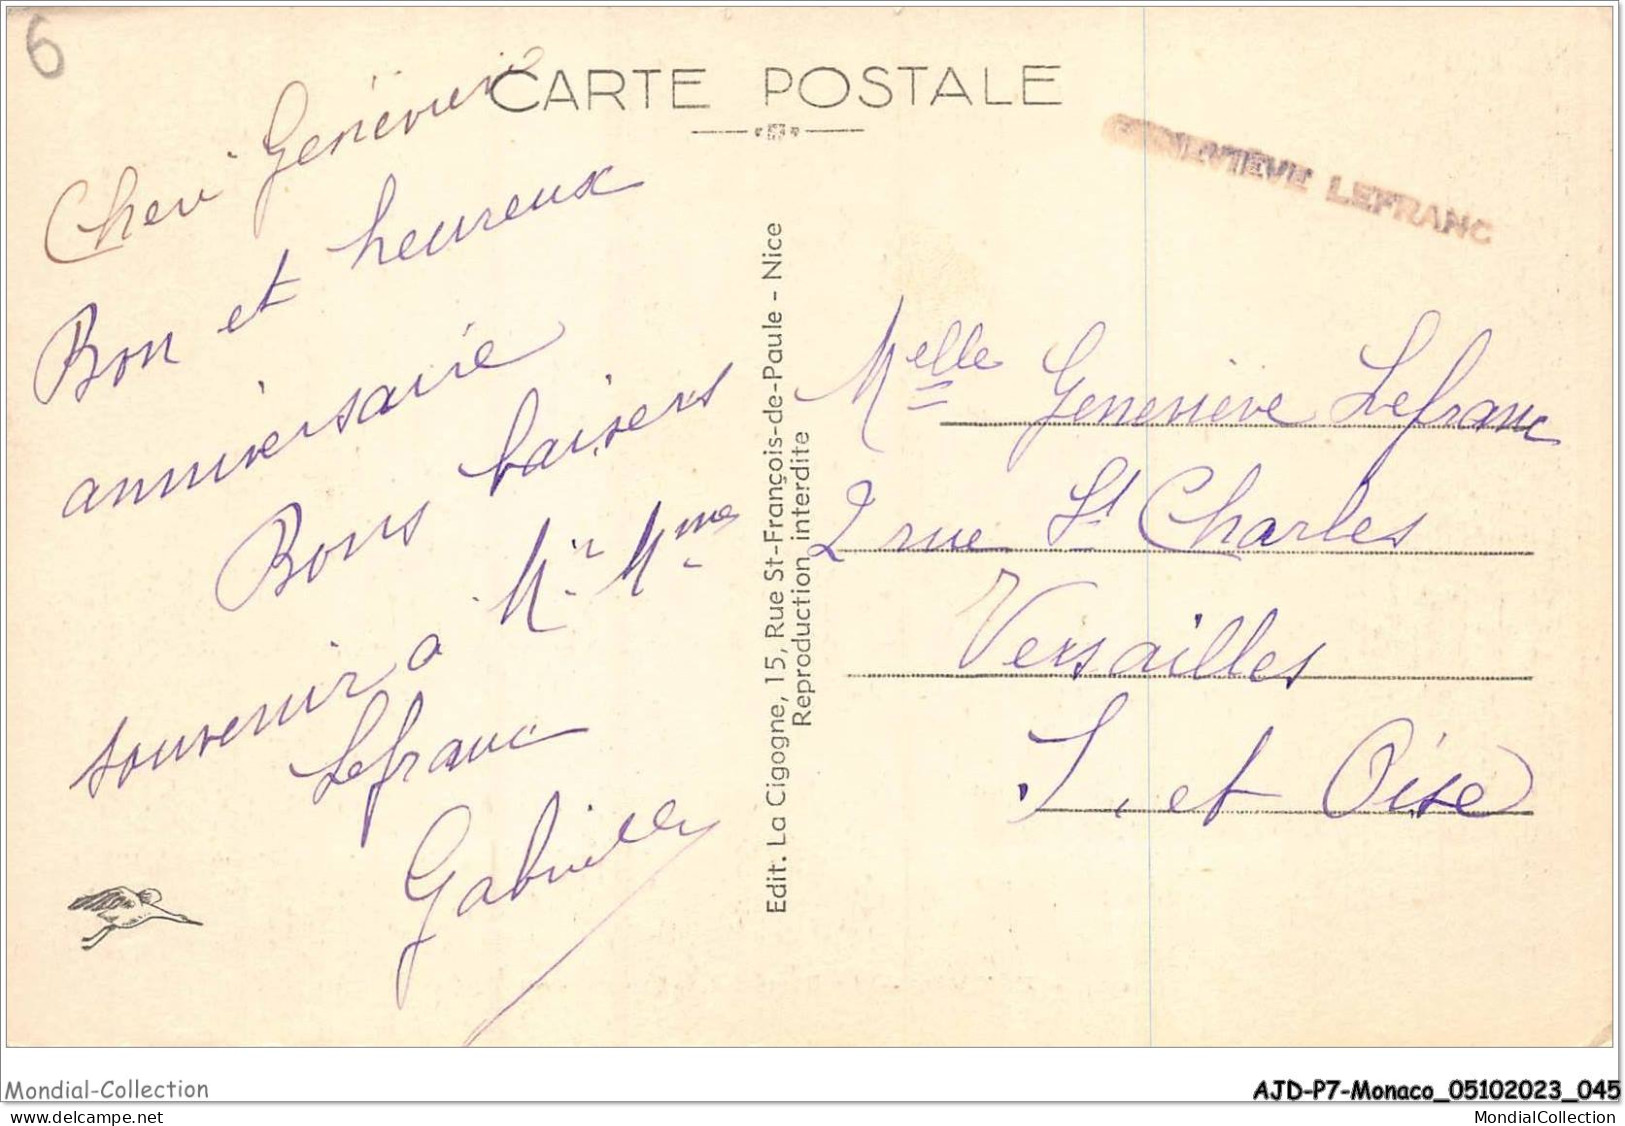 6
CARTE POSTALE
GENEVIÈVE LEFRANC
Cheri Geneviève
Bon et heureux
anniversaire
Bons baisers
souvenir a Mr Mme
Lefranc
Gabrielle
Edit. La Cigogne, 15, Rue St-François-de-Paule - Nice
Reproduction interdite
Melle Geneviève Lefranc
2 rue St Charles
Versailles
S. et Oise
Mondial-Collection
AJD-P7-Monaco_05102023_045
delcampe.net
MondialCollection